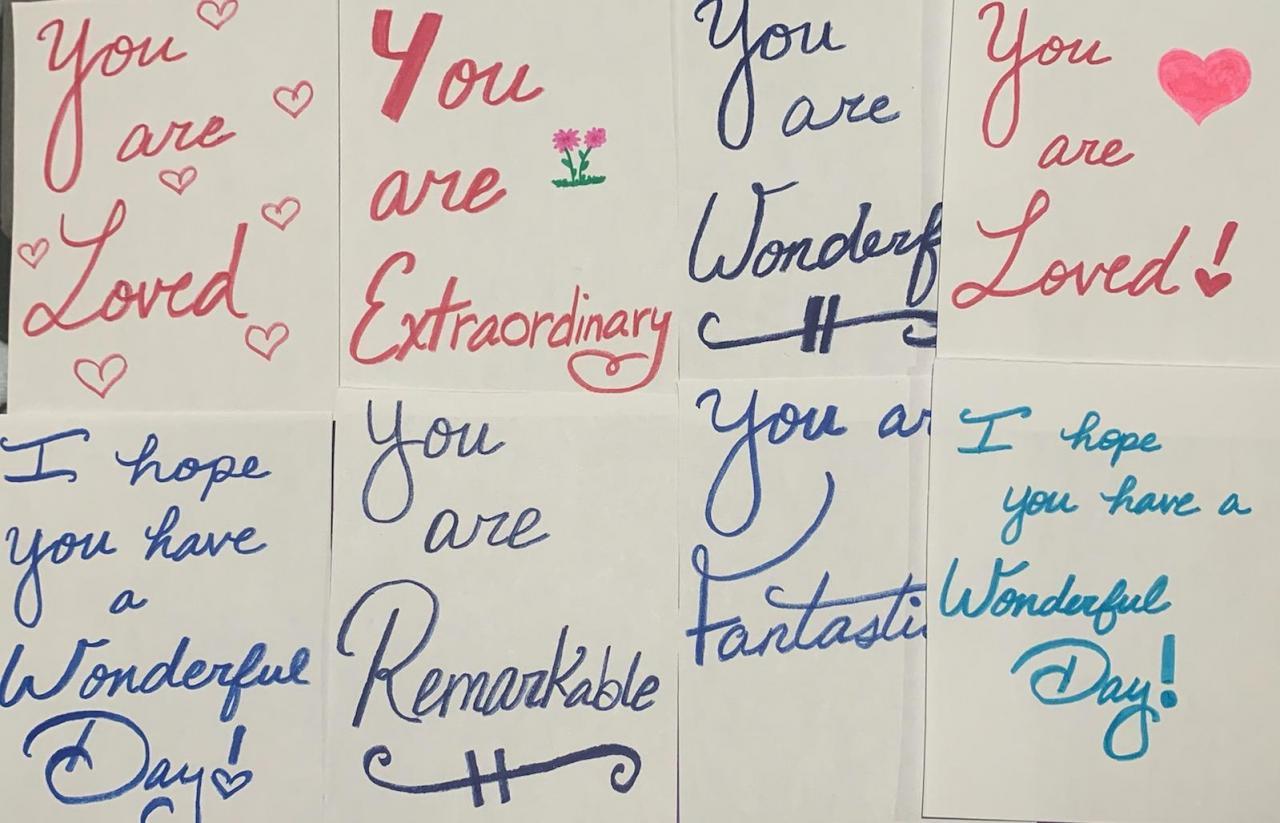 You
are
Loved
You
are
Extraordinary
You
are
Wonderf
You
are
Loved!
I hope
you have
a
Wonderful
Day!
You
are
Remarkable
You ar
Fantasti
I hope
you have a
Wonderful
Day!